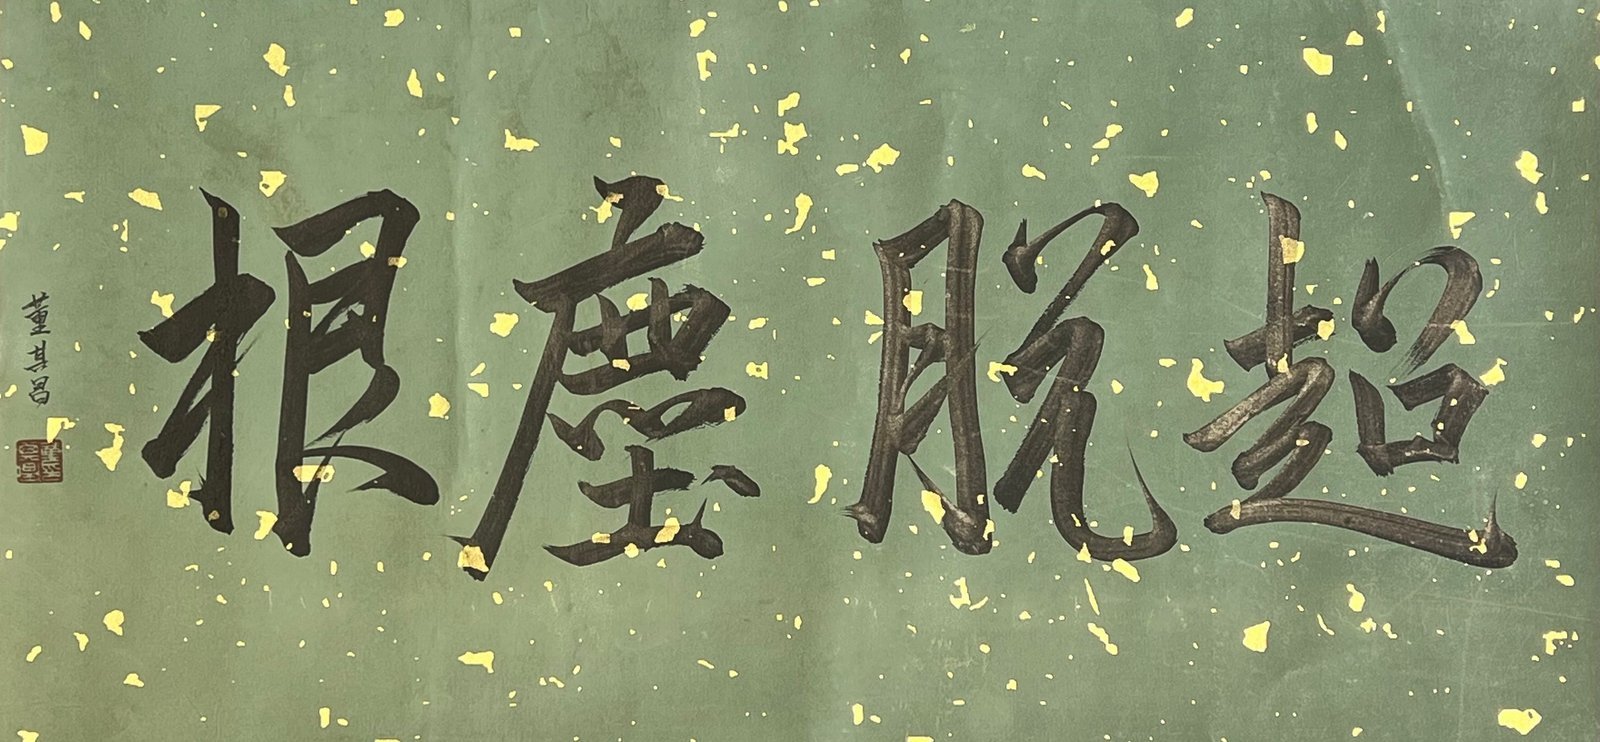 超脫塵根
董其昌